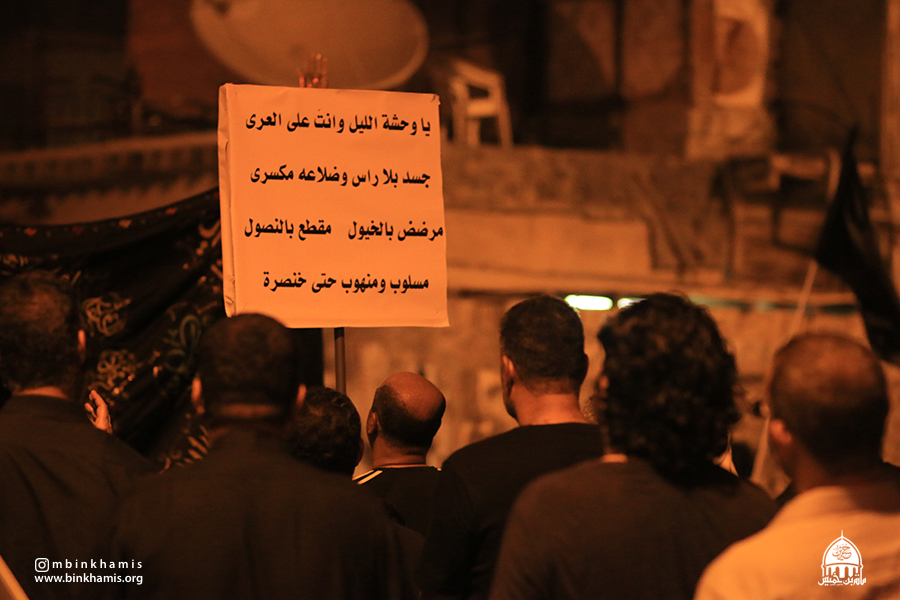 يا وحشة الليل وانتَ على العرى
جسد بلا راس وضلاعه مكسرى
مرضض بالخيول مقطع بالنصول
مسلوب ومنهوب حتى خنصرة
mbinkhamis
www.binkhamis.org